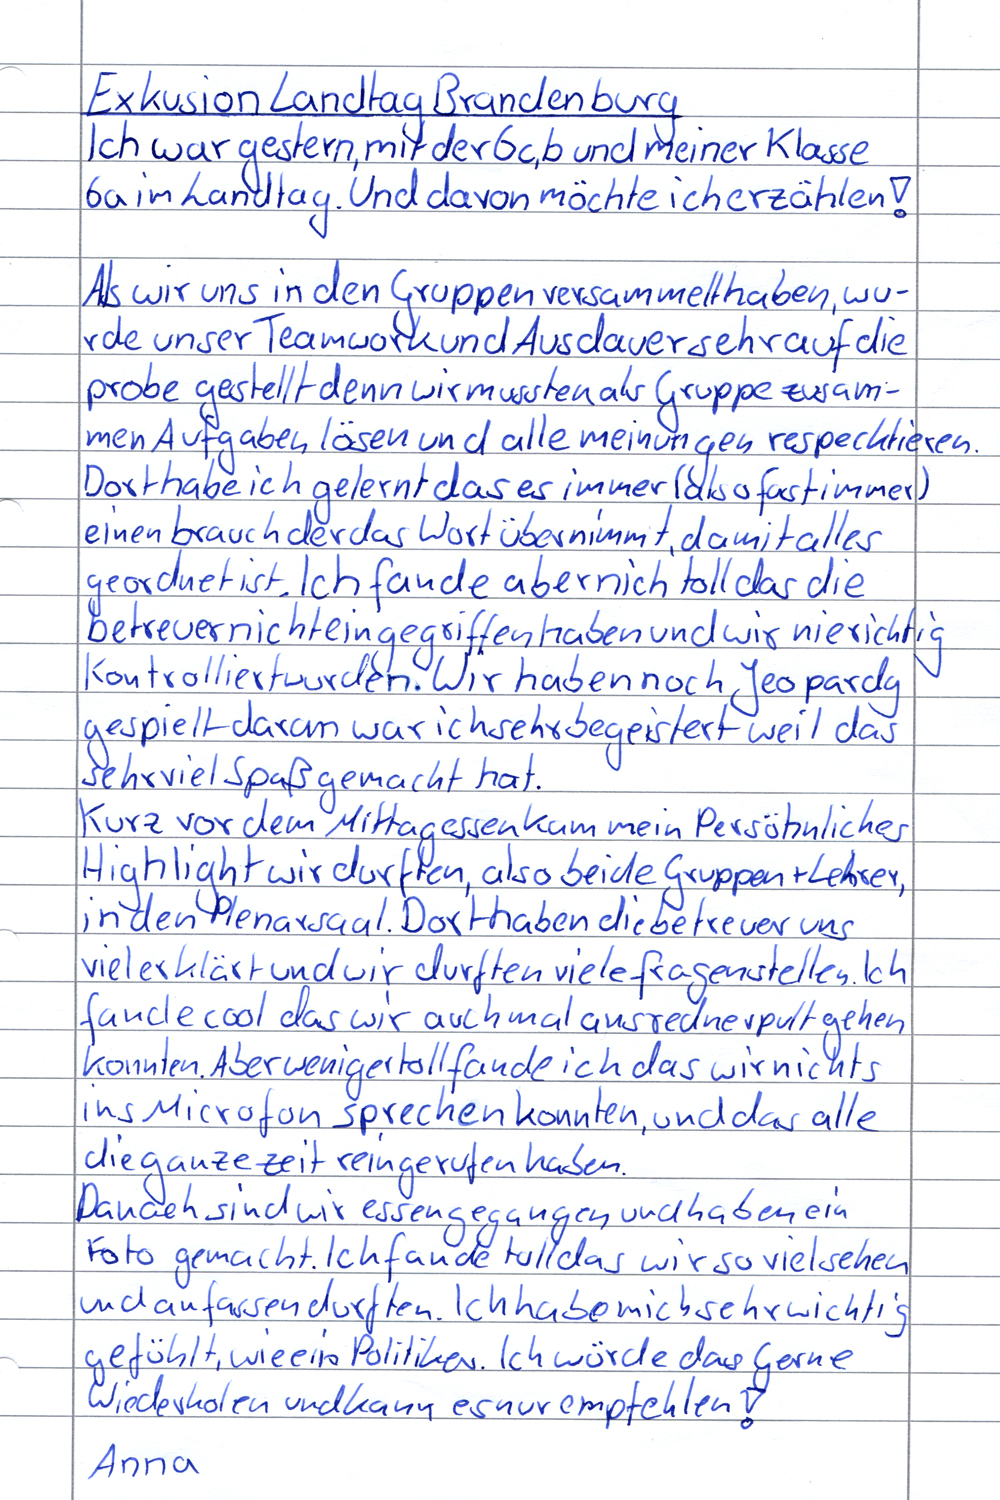 Exkusion Landtag Brandenburg
Ich war gestern, mit der 6c,b und meiner Klasse
6a im Landtag. Und davon möchte ich erzählen!
Als wir uns in den Gruppen versammelt haben, wu-
rde unser Teamwork und Ausdauer sehr auf die
probe gestellt denn wir mussten als Gruppe zusam-
men Aufgaben lösen und alle meinungen respecktieren.
Dort habe ich gelernt das es immer (also fast immer)
einen brauch der das Wort übernimmt, damit alles
geordnet ist. Ich fande aber nich toll das die
betreuer nicht eingegriffen haben und wir nie richtig
Kontrolliert wurden. Wir haben noch Jeopardy
gespielt daran war ich sehr begeistert weil das
sehr viel Spaß gemacht hat.
Kurz vor dem Mittagessen kam mein Persöhnliches
Highlight wir durften, also beide Gruppen + Lehrer,
in den Plenarsaal. Dort haben die betreuer uns
viel erklärt und wir durften viele fragen stellen. Ich
fande cool das wir auch mal ans rednerpult gehen
konnten. Aber weniger toll fande ich das wir nichts
ins Microfon sprechen konnten, und das alle
die ganze zeit reingerufen haben.
Danach sind wir essen gegangen und haben ein
Foto gemacht. Ich fande toll das wir so viel sehen
und anfassen durften. Ich habe mich sehr wichtig
gefühlt, wie ein Politiker. Ich würde das Gerne
Wiederholen und kann es nur empfehlen!
Anna